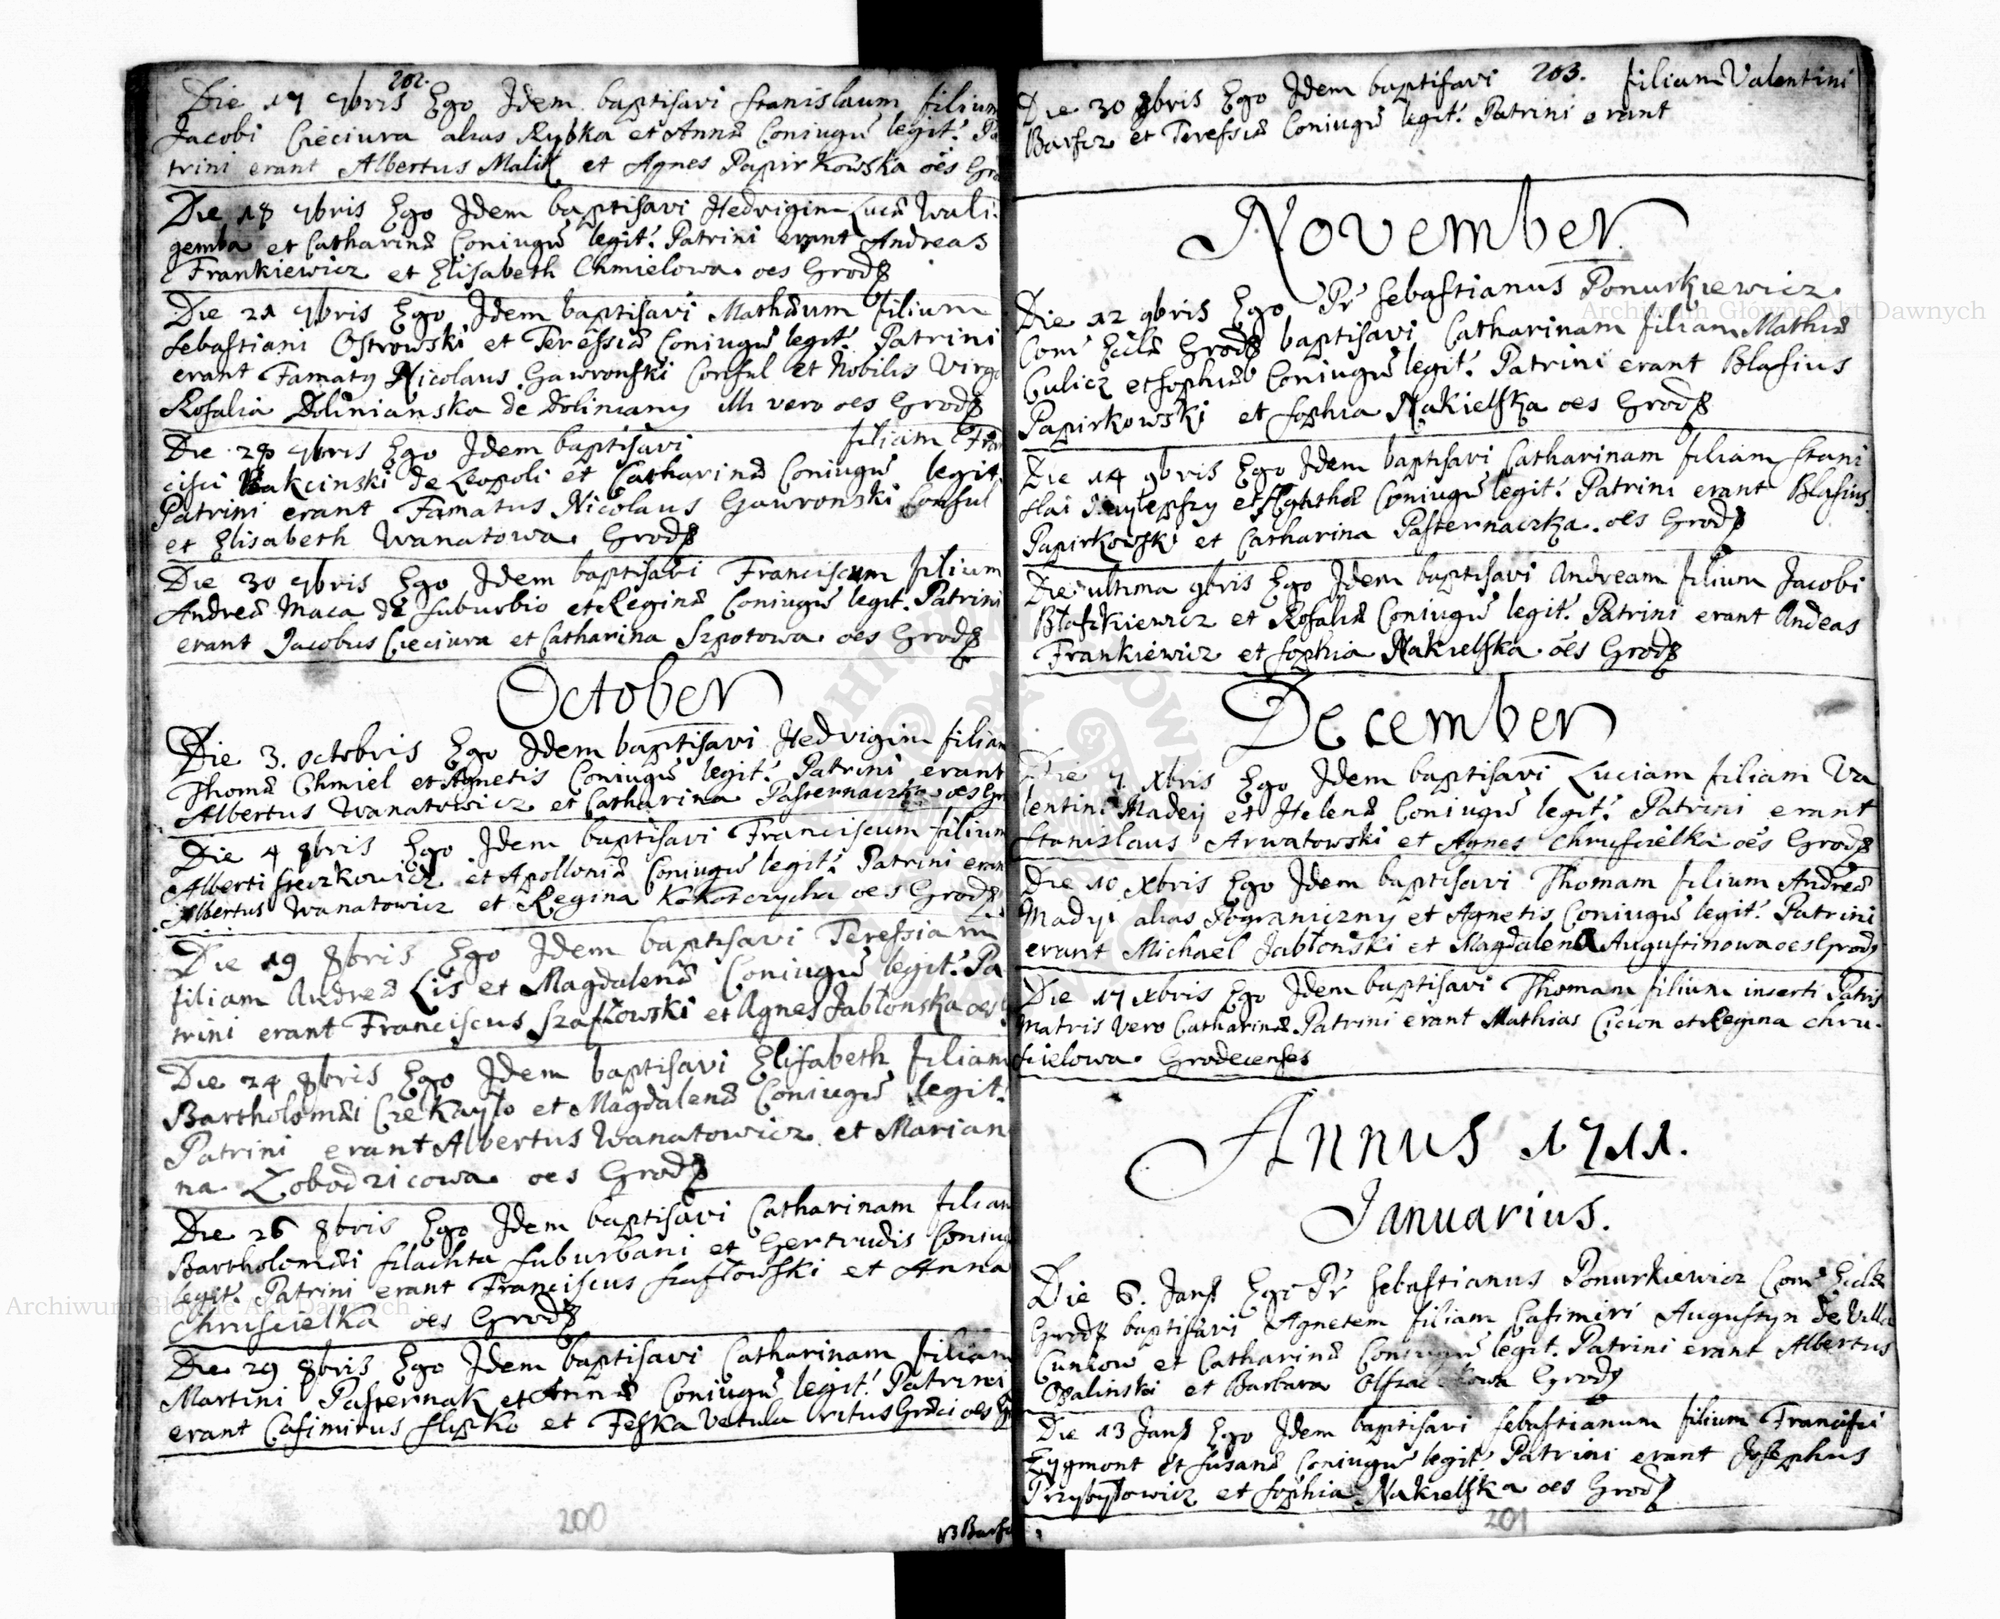 202.
Die 17 7bris Ego Idem baptisavi Stanislaum filium
Jacobi Cieciura alias Rybka et Annæ Coniugū legit: Pa
trini erant Albertus Malik et Agnes Papirkowska oēs Gro
Die 18 7bris Ego Idem baptisavi Hedvigim Lucæ Wali
gemba et Catharinæ Coniugū legit: Patrini erant Andreas
Frankiewicz et Elisabeth Chmielowa oes Grod
Die 21 7bris Ego Idem baptisavi Mathæum filium
Sebastiani Ostrowski et Teressiæ Coniugū legit: Patrini
erant Famatq Nicolaus Gawronski Consul et Nobilis Virgo
Rosalia Dolinianska de Doliniany illi vero oes Grod
Die 28 7bris Ego Idem baptisavi filiam Fran
cisci Bakcinski de Leopoli et Catharinæ Coniugū legit
Patrini erant Famatus Nicolaus Gawronski Consul
et Elisabeth Wanatowa Grod
Die 30 7bris Ego Idem baptisavi Franciscum filium
Andreæ Maca de suburbio et Reginæ Coniugū legit. Patrini
erant Jacobus Cieciura et Catharina Szpotowa oēs Grod
October
Die 3. octobris Ego Idem baptisavi Hedvigim filiam
Thomæ Chmiel et Agnetis Coniugū legit: Patrini erant
Albertus Wanatowicz et Catharina Pasternaczka oes Gr
Die 4 8bris Ego Idem baptisavi Franciscum filium
Alberti et Apolloniæ Coniugū legit: Patrini eran
Albertus Wanatowicz et Regina oes Grod
Die 19 8bris Ego Idem baptisavi Teressiam
filiam Andreæ Lis et Magdalenæ Coniugū legit: Pa
trini erant Franciscus Szafłowski et Agnes Jabłonska oes
Die 24 8bris Ego Idem baptisavi Elisabeth filiam
Bartholomæi Czekayło et Magdalenæ Coniugū legit:
Patrini erant Albertus Wanatowicz et Marian
na Zobodzicowa oes Grod
Die 26 8bris Ego Idem baptisavi Catharinam filiam
Bartholomæi Slachta suburbani et Gertrudis Coniug
legit: Patrini erant Franciscus Szafłowski et Anna
Chruscielka oes Grod
Die 29 8bris Ego Idem baptisavi Catharinam filiam
Martini Pasternak et Annæ Coniugū legit: Patrini
erant Casimirus Slipko et Feska Vetula ritus Græci oes Gr
200
203.
Die 30 8bris Ego Idem baptisavi filiam Valentini
Barscz et Teressiæ Coniugū legit: Patrini erant
November
Die 12 9bris Ego Pr Sebastianus Ponurkiewicz
Com Ecclæ Grod baptisavi Catharinam filiam Mathiæ
Culicz et Sophiæ Coniugū legit: Patrini erant Blasius
Papirkowski et Sophia Nakielska oes Grod
Die 14 9bris Ego Idem baptisavi Catharinam filiam Stani
slai et Agathæ Coniugū legit: Patrini erant Blasius
Papirkowski et Catharina Pasternaczka oes Grod
Die ultima 9bris Ego Idem baptisavi Andream filium Jacobi
Błaszkiewicz et Rosaliæ Coniugū legit: Patrini erant Andeas
Frankiewicz et Sophia Nakielska oēs Grod
December
Die 7 Xbris Ego Idem baptisavi Luciam filiam Va
lentini Madeij et Helenæ Coniugū legit: Patrini erant
Stanislaus Arwatowski et Agnes Chruscielka oēs Grod
Die 10 Xbris Ego Idem baptisavi Thomam filium Andreæ
Madyi alias Pograniczny et Agnetis Coniugū legit: Patrini
erant Michael Jabłonski et Magdalena Augustinowa oes Grod
Die 17 Xbris Ego Idem baptisavi Thomam filium inserti Patris
Matris vero Catharinæ Patrini erant Mathias Cicion et Regina Chru
scielowa Grodecenses
Annus 1711.
Januarius.
Die 6. Jans Ego Pr Sebastianus Ponurkiewicz Com Ecclæ
Grod baptisavi Agnetem filiam Casimiri Augustyn de Villa
Cuniow et Catharinæ Coniugū legit. Patrini erant Albertus
Opalinski et Barbara Grod
Die 13 Jans Ego Idem baptisavi Sebastianum filium Francisci
Zygmont et Susanæ Coniugū legit: Patrini erant Josephus
Przybyłowicz et Sophia Nakielska oes Grod
201
Archiwum Główne Akt Dawnych
Archiwum Główne Akt Dawnych